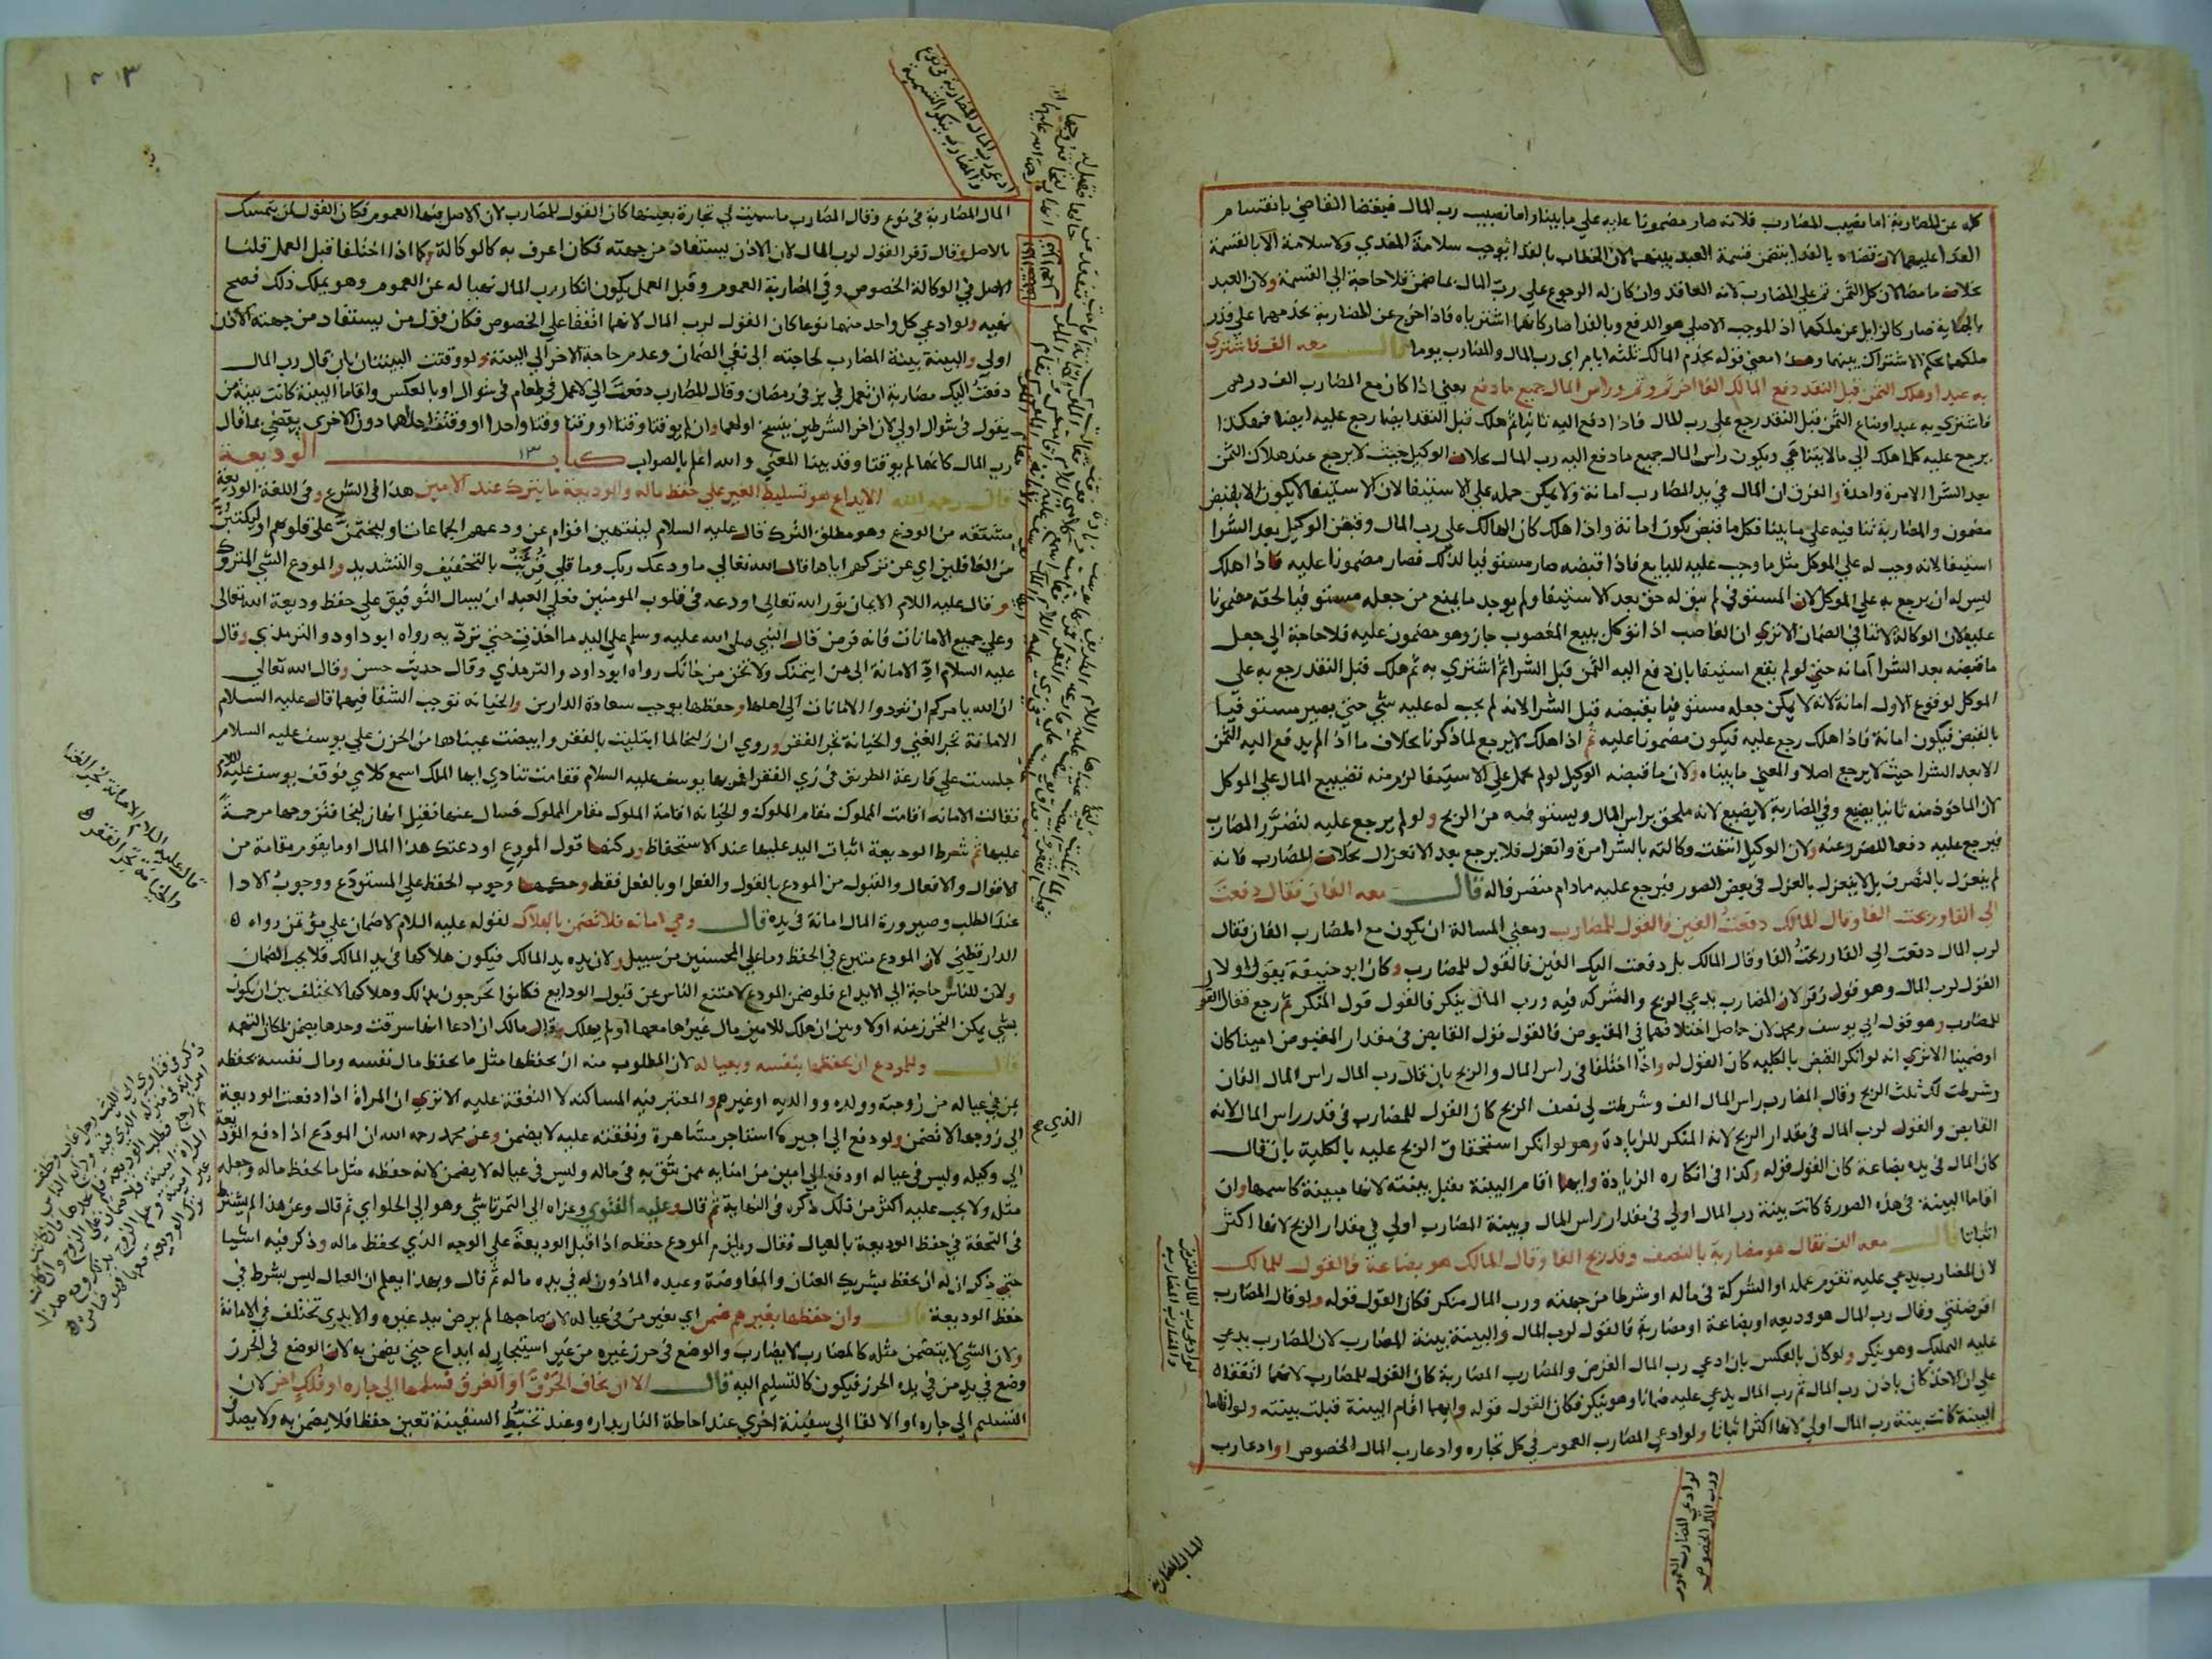 كله عن المضاربة اما نصيب المضارب فلانه صار مضمونا عليه على ما بينا واما نصيب رب المال فبقضا القاضي بانقسام
الفدا عليهما لان قضاه بالفدا يتضمن قسمة العبد بينهما لان الخطاب بالفدا يوجب سلامة المفدي ولا سلامة الا بالقسمة
بخلاف ما مضا لان كل الثمن ثم على المضارب لانه العاقد وان كان له الرجوع على رب المال بما ضمن فلا حاجة الى القسمة ولان العبد
بالجناية صار كالزايل عن ملكهما اذ الموجب الاصلي هو الدفع وبالفدا صار كانهما اشترياه فاذا خرج عن المضاربة يخدمهما على قدر
ملكهما بحكم الاشتراك بينهما وهذا معنى قوله يخدم المالك ثلثة ايام اي رب المال والمضارب يوما قال معه الف فاشترى
به عبدا وهلك الثمن قبل النقد دفع المالك الفا اخر ثم وثم وراس المال جميع ما دفع يعني اذا كان مع المضارب الف درهم
فاشترى به عبدا وضاع الثمن قبل النقد رجع على رب المال فاذا دفع اليه ثانيا ثم هلك قبل النقد ايضا رجع عليه ايضا فهكذا
يرجع عليه كلما هلك الى ما لا يتناهى ويكون راس المال جميع ما دفع اليه رب المال بخلاف الوكيل حيث لا يرجع عند هلاك الثمن
بعد الشرا الا مرة واحدة والفرق ان المال في يد المضارب امانة ولا يمكن حمله على الاستيفا لان الاستيفا لا يكون الا بقبض
مضمون والمضاربة تنافيه على ما بينا فكل ما قبض يكون امانة واذا هلك كان الهالك على رب المال وقبض الوكيل بعد الشرا
استيفا لانه وجب له على الموكل مثل ما وجب عليه للبايع فاذا قبضه صار مستوفيا لذلك فصار مضمونا عليه فاذا هلك
ليس له ان يرجع به على الموكل لان المستوفي لم يبق له حق بعد الاستيفا ولم يوجد ما يمنع من جعله مستوفيا لحقه مضمونا
عليه لان الوكالة لا تنافي الضمان الا ترى ان الغاصب اذا توكل ببيع المغصوب جاز وهو مضمون عليه فلا حاجة الى جعل
ما قبضه بعد الشرا امانة حتى لو لم يقع استيفا بان دفع اليه الثمن قبل الشرا ثم اشترى به ثم هلك قبل النقد رجع به على
الموكل لوقوع الاول امانة لانه لا يمكن جعله مستوفيا بقبضه قبل الشرا لانه لم يجب له عليه شي حتى يصير مستوفيا
بالقبض فيكون امانة فاذا هلك رجع عليه فيكون مضمونا عليه ثم اذا هلك لا يرجع لما ذكرنا بخلاف ما اذا لم يدفع اليه الثمن
الا بعد الشرا حيث لا يرجع اصلا والمعنى ما بيناه ولان ما قبضه الوكيل لو لم يحمل على الاستيفا لزم منه تضييع المال على الموكل
لان الماخوذ منه ثانيا يضيع وفي المضاربة لا يضيع لانه ملحق براس المال ويستوفيه من الربح ولو لم يرجع عليه لتضرر المضارب
فيرجع عليه دفعا للضرر عنه ولان الوكيل انتهت وكالته بالشرا مرة وانعزل فلا يرجع بعد الانعزال بخلاف المضارب فانه
لم ينعزل بالتصرف بل لا ينعزل بالعزل في بعض الصور فيرجع عليه ما دام متصرفا له قال معه الفان فقال دفعت
الي الفا وربحت الفا وقال المالك دفعت الفين فالقول للمضارب ومعنى المسالة ان يكون مع المضارب الفان فقال
لرب المال دفعت الي الفا وربحت الفا وقال المالك بل دفعت اليك الفين فالقول للمضارب وكان ابو حنيفة يقول اولا
القول لرب المال وهو قول زفر لان المضارب يدعي الربح والشركة فيه ورب المال ينكر فالقول قول المنكر ثم رجع فقال القول
للمضارب وهو قول ابي يوسف ومحمد لان حاصل اختلافهما في المقبوض فالقول قول القابض في مقدار المقبوض امينا كان
او ضمينا الا ترى انه لو انكر القبض بالكلية كان القول له واذا اختلفا في راس المال والربح بان قال رب المال راس المال الفان
وشرطت لك ثلث الربح وقال المضارب راس المال الف وشرطت لي نصف الربح كان القول للمضارب في قدر راس المال لانه
القابض والقول لرب المال في مقدار الربح لانه المنكر للزيادة وهو لو انكر استحقاق الربح عليه بالكلية بان قال
كان المال في يده بضاعة كان القول قوله وكذا في انكاره الزيادة وايهما اقام البينة تقبل بينته لانها مبينة كاسمها وان
اقاما البينة في هذه الصورة كانت بينة رب المال اولى في مقدار راس المال وبينة المضارب اولى في مقدار الربح لانها اكثر
اثباتا قال معه الف فقال هو مضاربة بالنصف وقد ربح الفا وقال المالك هو بضاعة فالقول للمالك
لان المضارب يدعي عليه تقوم عمله او الشركة في ماله او شرطا من جهته ورب المال منكر فكان القول قوله ولو قال المضارب
اقرضتني وقال رب المال هو وديعة او بضاعة او مضاربة فالقول لرب المال والبينة بينة المضارب لان المضارب يدعي
عليه التمليك وهو ينكر ولو كان بالعكس بان ادعى رب المال القرض والمضارب المضاربة كان القول للمضارب لانهما اتفقا
على ان الاخذ كان باذن رب المال ثم رب المال يدعي عليه ضمانا وهو ينكر فكان القول قوله وايهما اقام البينة قبلت بينته ولو اقاما
البينة كانت بينة رب المال اولى لانها اكثر اثباتا ولو ادعى المضارب العموم في كل تجارة وادعا رب المال الخصوص او ادعا رب
لو ادعى رب المال القرض
والمضارب المضاربة
لو ادعى المضارب العموم
ورب المال الخصوص
المال المضاربة
ادعى رب المال المضاربة في نوع
والمضارب ينكر التسمية
المال المضاربة في نوع وقال المضارب ما سميت لي تجارة بعينها كان القول للمضارب لان الاصل فيها العموم فكان القول لمن يتمسك
بالاصل وقال زفر القول لرب المال لان الاذن يستفاد من جهته فكان اعرف به كالوكالة وكما اذا اختلفا قبل العمل قلنا
الاصل في الوكالة الخصوص وفي المضاربة العموم وقبل العمل يكون انكار رب المال نهيا له عن العموم وهو يملك ذلك فصح
نهيه ولو ادعى كل واحد منهما نوعا كان القول لرب المال لانهما اتفقا على الخصوص فكان قول من يستفاد من جهته الاذن
اولى والبينة بينة المضارب لحاجته الى نفي الضمان وعدم حاجة الاخر الى البينة ولو وقتت البينتان بان قال رب المال
دفعت اليك مضاربة ان تعمل في بز في رمضان وقال المضارب دفعت الي لاعمل في طعام في شوال او بالعكس واقاما البينة كانت بينة من
يقول في شوال اولى لان اخر الشرطين ينسخ اولهما وان لم يوقتا وقتا او وقتا وقتا واحدا او وقتت احداهما دون الاخرى يقضى بما قال
رب المال كانهما لم يوقتا وقد بينا المعنى والله اعلم بالصواب كتاب الوديعة
قال رحمه الله الايداع هو تسليط الغير على حفظ ماله والوديعة ما يترك عند الامين هذا في الشرع وفي اللغة الوديعة
مشتقة من الودع وهو مطلق الترك قال عليه السلام لينتهين اقوام عن ودعهم الجماعات او ليختمن على قلوبهم او ليكتبن
من الغافلين اي عن تركهم اياها قال الله تعالى ما ودعك ربك وما قلى قرئت بالتخفيف والتشديد والمودع الشي المتروك
وقال عليه السلام الايمان نور الله تعالى اودعه في قلوب المومنين فعلى العبد ان يسال التوفيق على حفظ وديعة الله تعالى
وعلى جميع الامانات فانه فرض قال النبي صلى الله عليه وسلم على اليد ما اخذت حتى ترد به رواه ابو داود والترمذي وقال
عليه السلام اد الامانة الى من ايتمنك ولا تخن من خانك رواه ابو داود والترمذي وقال حديث حسن وقال الله تعالى
ان الله يامركم ان تودوا الامانات الى اهلها وحفظها يوجب سعادة الدارين والخيانة توجب الشقا فيهما قال عليه السلام
الامانة تجر الغنى والخيانة تجر الفقر وروي ان زليخا لما ابتليت بالفقر وابيضت عيناها من الحزن على يوسف عليه السلام
جلست على قارعة الطريق في زي الفقرا فمر بها يوسف عليه السلام فقامت تنادي ايها الملك اسمع كلامي فوقف يوسف عليه السلام
فقالت الامانة اقامت المملوك مقام الملوك والخيانة اقامة الملوك مقام المملوك فسال عنها فقيل انها زليخا فتزوجها مرحمة
عليها ثم شرط الوديعة اثبات اليد عليها عند الاستحفاظ وركنها قول المودع اودعتك هذا المال او ما يقوم مقامه من
الاقوال والافعال والقبول من المودع بالقول والفعل او بالفعل فقط وحكمها وجوب الحفظ على المستودع ووجوب الادا
عند الطلب وصيرورة المال امانة في يده قال وهي امانة فلا تضمن بالهلاك لقوله عليه السلام لا ضمان على مؤتمن رواه
الدارقطني لان المودع متبرع في الحفظ وما على المحسنين من سبيل ولان يده يد المالك فيكون هلاكها في يد المالك فلا يجب الضمان
ولان للناس حاجة الى الايداع فلو ضمن المودع لامتنع الناس عن قبول الودايع فكانوا يحرجون بذلك وهلاكها لا يختلف بين ان يكون
بشي يمكن التحرز عنه او لا وبين ان هلك للامين مال غيرها معها او لم يهلك وقال مالك ان ادعا انها سرقت وحدها يضمن لمكان التهمة
قال وللمودع ان يحفظها بنفسه وبعياله لان المطلوب منه ان يحفظها مثل ما يحفظ مال نفسه ومال نفسه يحفظه
بمن في عياله من زوجته وولده ووالديه او غيرهم والمعتبر فيه المساكنة لا النفقة عليه الا ترى ان المراة اذا دفعت الوديعة
الى زوجها لا تضمن ولو دفع الى اجيره استاجره مشاهرة ونفقته عليه لا يضمن وعن محمد رحمه الله ان المودع اذا دفع الوديعة
الى وكيله وليس في عياله او دفع الى امين من امنايه ممن يثق به في ماله وليس في عياله لا يضمن لانه حفظه مثل ما يحفظ ماله وجعله
مثله ولا يجب عليه اكثر من ذلك ذكره في النهاية ثم قال وعليه الفتوى وعزاه الى التمرتاشي وهو الى الحلواي ثم قال وعن هذا لم يشترط
في التحفة في حفظ الوديعة بالعيال فقال ويلزم المودع حفظه اذا قبل الوديعة على الوجه الذي يحفظ ماله وذكر فيه اشيا
حتى ذكر ان له ان يحفظ بشريك العنان والمفاوضة وعبده الماذون له في يده ماله ثم قال وبهذا يعلم ان العيال ليس بشرط في
حفظ الوديعة قال وان حفظها بغيرهم ضمن اي بغير من في عياله لان صاحبها لم يرض بيد غيره والايدي تختلف في الامانة
ولان الشي لا يتضمن مثله كالمضارب لا يضارب والوضع في حرز غيره من غير استيجار له ايداع حتى يضمن به لان الوضع في الحرز
وضع في يد من في يده الحرز فيكون كالتسليم اليه قال الا ان يخاف الحرق او الغرق فسلمها الى جاره او فلك اخر لان
التسليم الى جاره او الالقا الى سفينة اخرى عند احاطة النار بداره وعند تخبط السفينة تعين حفظا فلا يضمن به ولا يصدق
قال عليه السلام الامانة تجر الغنا
والخيانة تجر الفقر
الذي